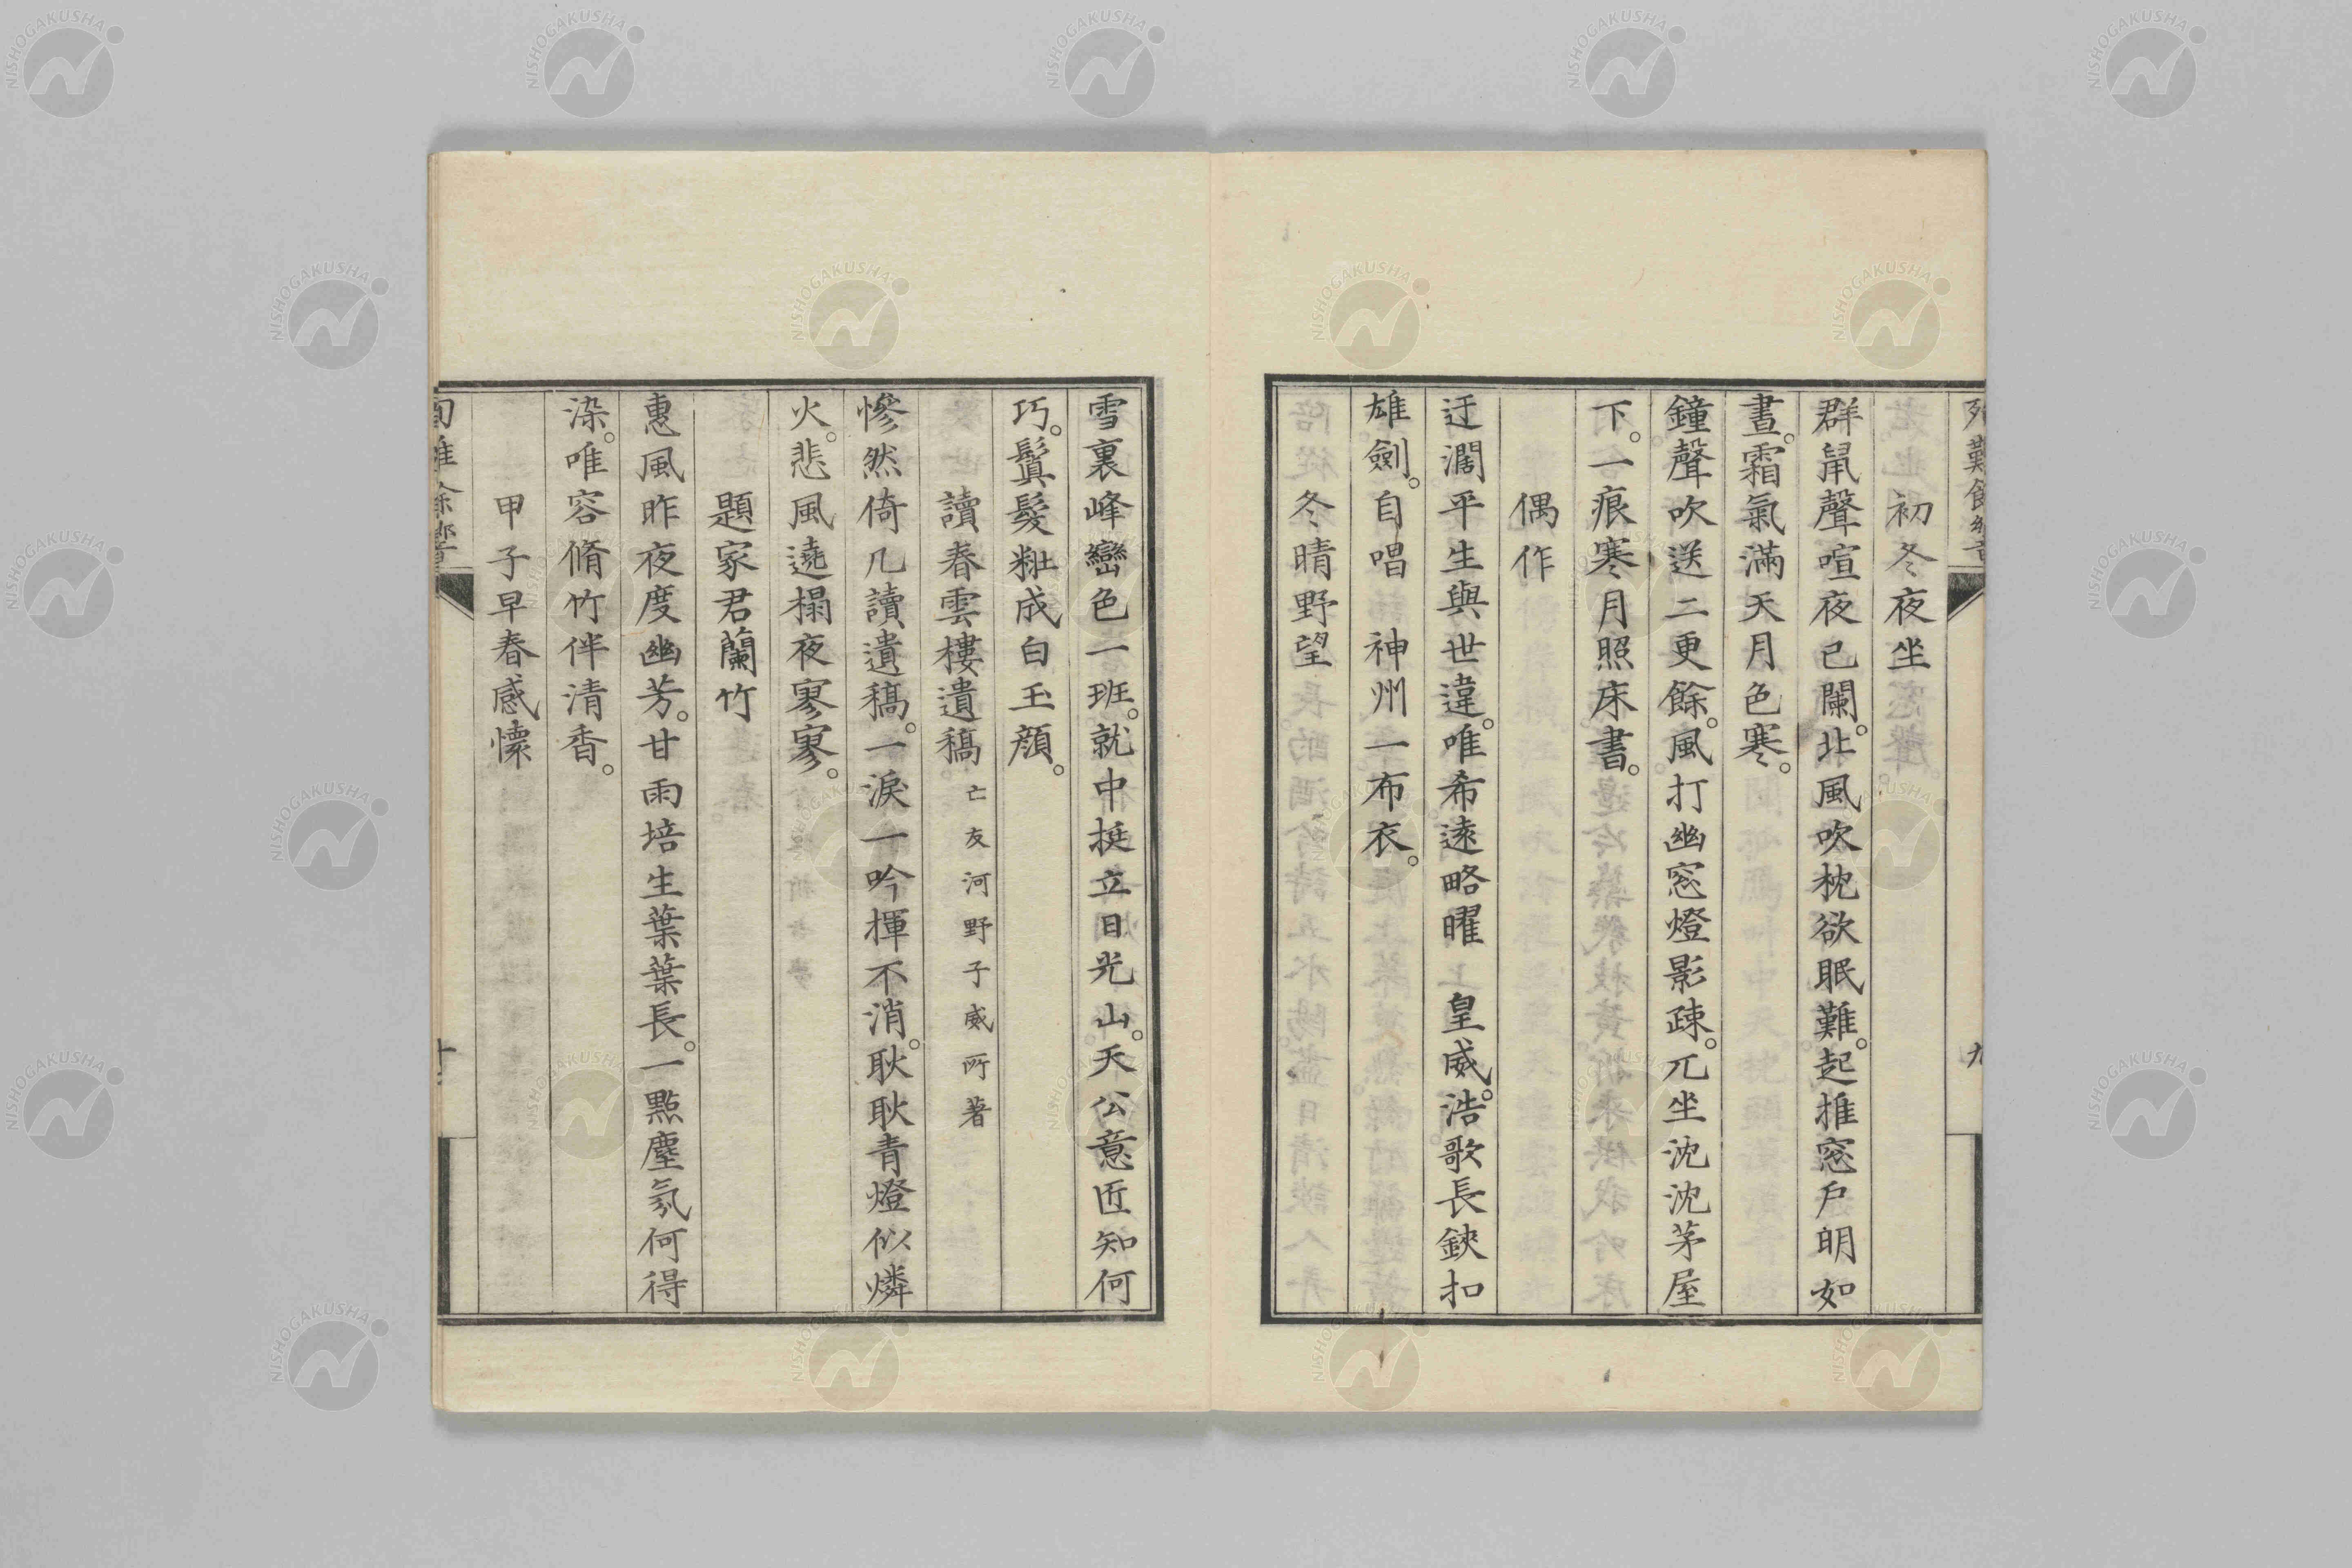 初冬夜坐
群鼠聲喧夜已闌。北風吹枕欲眠難。起推窓戶明如
晝。霜氣滿天月色寒。
鐘聲吹送二更餘。風打幽窓燈影疎。兀坐沈沈茅屋
下。一痕寒月照床書。
偶作
迂濶平生與世違。唯希遠略曜　皇威。浩歌長鋏扣
雄劍。自唱　神州一布衣。
冬晴野望
雪裏峰巒色一班。就中挺立日光山。天公意匠知何
巧。鬒髮粧成白玉顔。
讀春雲樓遺稿 亡友河野子威所著
慘然倚几讀遺稿。一淚一吟揮不消。耿耿青燈似燐
火。悲風遶榻夜寥寥。
題家君蘭竹
惠風昨夜度幽芳。甘雨培生葉葉長。一點塵氛何得
染。唯容脩竹伴清香。
甲子早春感懷
九
十
NISHOGAKUSHA